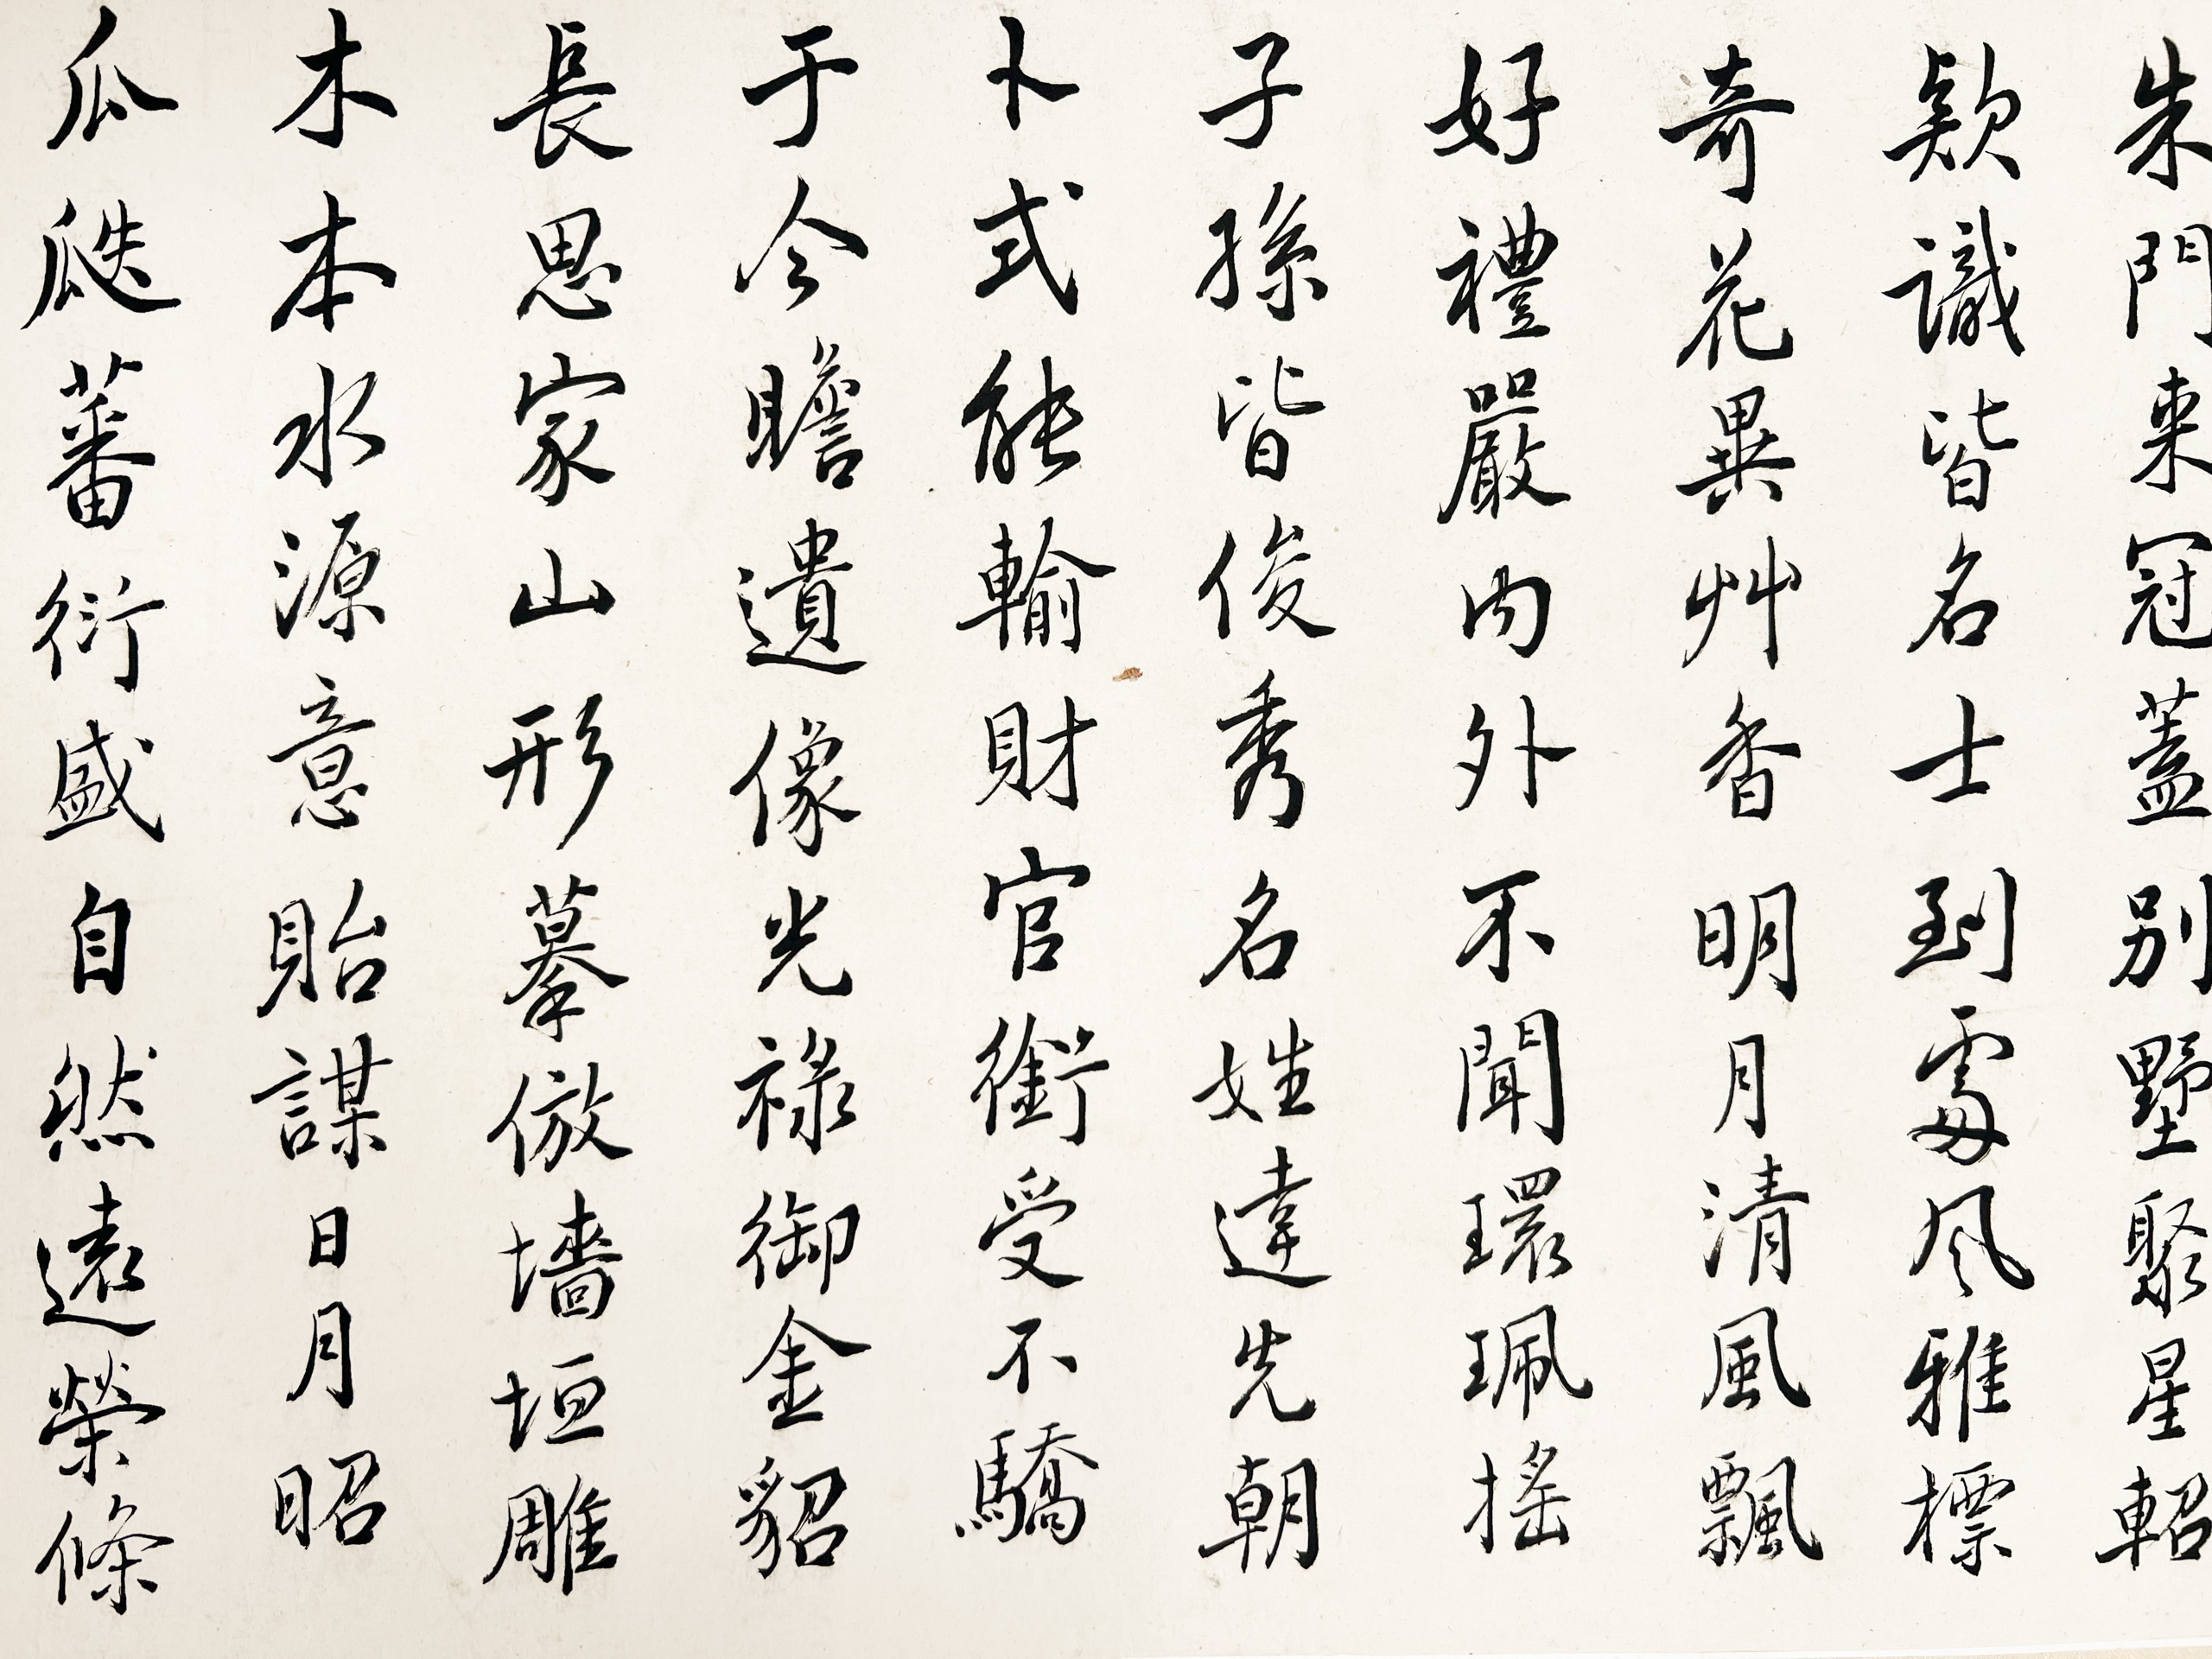 朱門東冠蓋別墅聚星軺
欵識皆名士到處風雅標
奇花異艸香明月清風飄
好禮嚴內外不聞環珮搖
子孫皆俊秀名姓達先朝
卜式能輸財官銜受不驕
于今瞻遺像光祿御金貂
長思家山形摹倣墻垣雕
木本水源意貽謀日月昭
瓜瓞蕃衍盛自然遠榮條